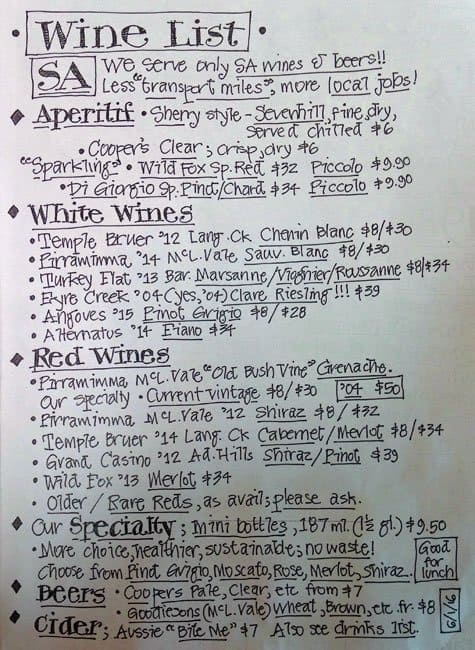 • Wine List •
SA We serve only SA wines & beers!!
Less "transport miles", more local jobs!
◆ Aperitif • Sherry style - Sevenhill, fine, dry,
served chilled $6
• Cooper's Clear; crisp, dry $6
"Sparkling" • Wild Fox Sp. Red $32 Piccolo $9.90
• Di Giorgio Sp. Pinot/Chard $34 Piccolo $9.90
◆ White Wines
• Temple Bruer '12 Lang. Ck Chenin Blanc $8/$30
• Pirramimma, '14 McL. Vale Sauv. Blanc $8/$30
• Turkey Flat '13 Bar. Marsanne/Viognier/Roussanne $8/$34
• Eyre Creek '04 (yes, '04) Clare Riesling!!! $39
• Angoves '15 Pinot Grigio $8/$28
• Alternatus '14 Fiano $34
◆ Red Wines
• Pirramimma, McL. Vale "Old Bush Vine" Grenache.
Our specialty • Current vintage $8/$30 '04 $50
• Pirramimma McL. Vale '12 Shiraz $8/$32
• Temple Bruer '14 Lang. Ck Cabernet/Merlot $8/$34
• Grand Casino '12 Ad. Hills Shiraz/Pinot $39
• Wild Fox '13 Merlot $34
• Older/Rare Reds, as avail; please ask.
◆ Our Specialty; mini bottles, 187 ml. (1½ gl.) $9.50
• More choice, healthier, sustainable; no waste!
Choose from Pinot Grigio, Moscato, Rose, Merlot, Shiraz.
Good for lunch
◆ Beers • Coopers Pale, Clear, etc from $7
• Goodiesons (McL. Vale) Wheat, Brown, etc. fr. $8
◆ Cider; Aussie "Bite Me" $7 Also see drinks list.
6/1/16